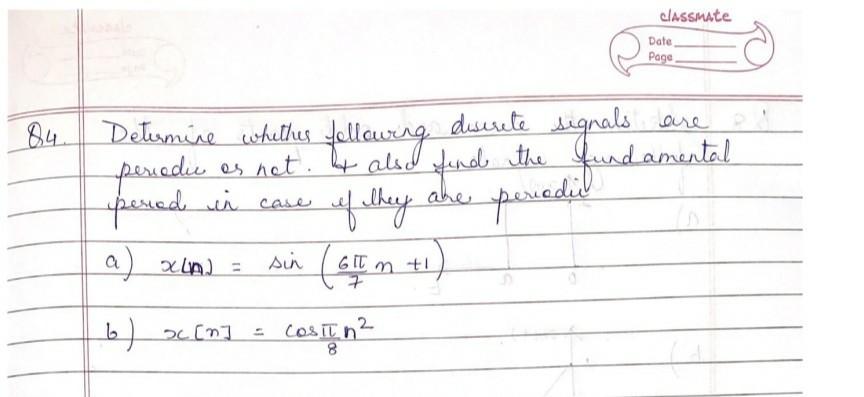 classmate
Date
Page
Q4. Determine whether following discrete signals are
periodic or not. & also find the fundamental
period in case if they are periodic
a) x[n] = sin (6π/7 n +1)
b) x[n] = cos π/8 n²